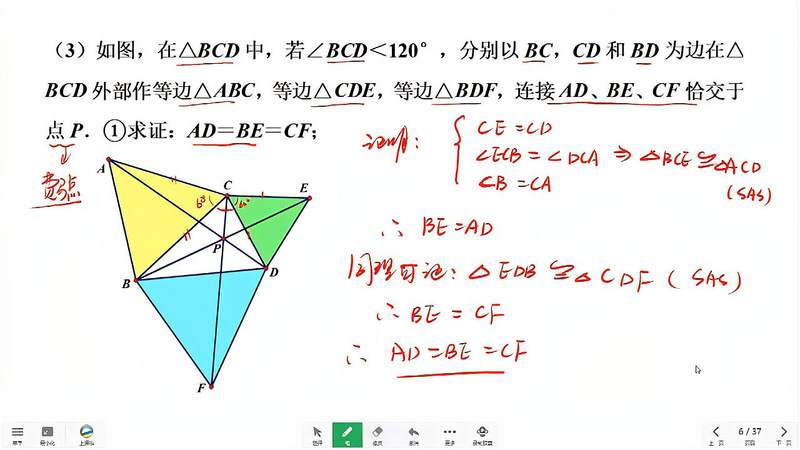 （3）如图，在△BCD 中，若∠BCD＜120°，分别以 BC，CD 和 BD 为边在△
BCD 外部作等边△ABC，等边△CDE，等边△BDF，连接 AD、BE、CF 恰交于
点 P．①求证：AD＝BE＝CF；
费马点
证明：
CE = CD
∠ECB = ∠DCA ⇒ △BCE ≌ △ACD
CB = CA
(SAS)
∴ BE = AD
同理可证：△EDB ≌ △CDF (SAS)
∴ BE = CF
∴ AD = BE = CF
A
C
E
60°
60°
P
B
D
F
最小化
更多
6 / 37
上一页
页码
下一页